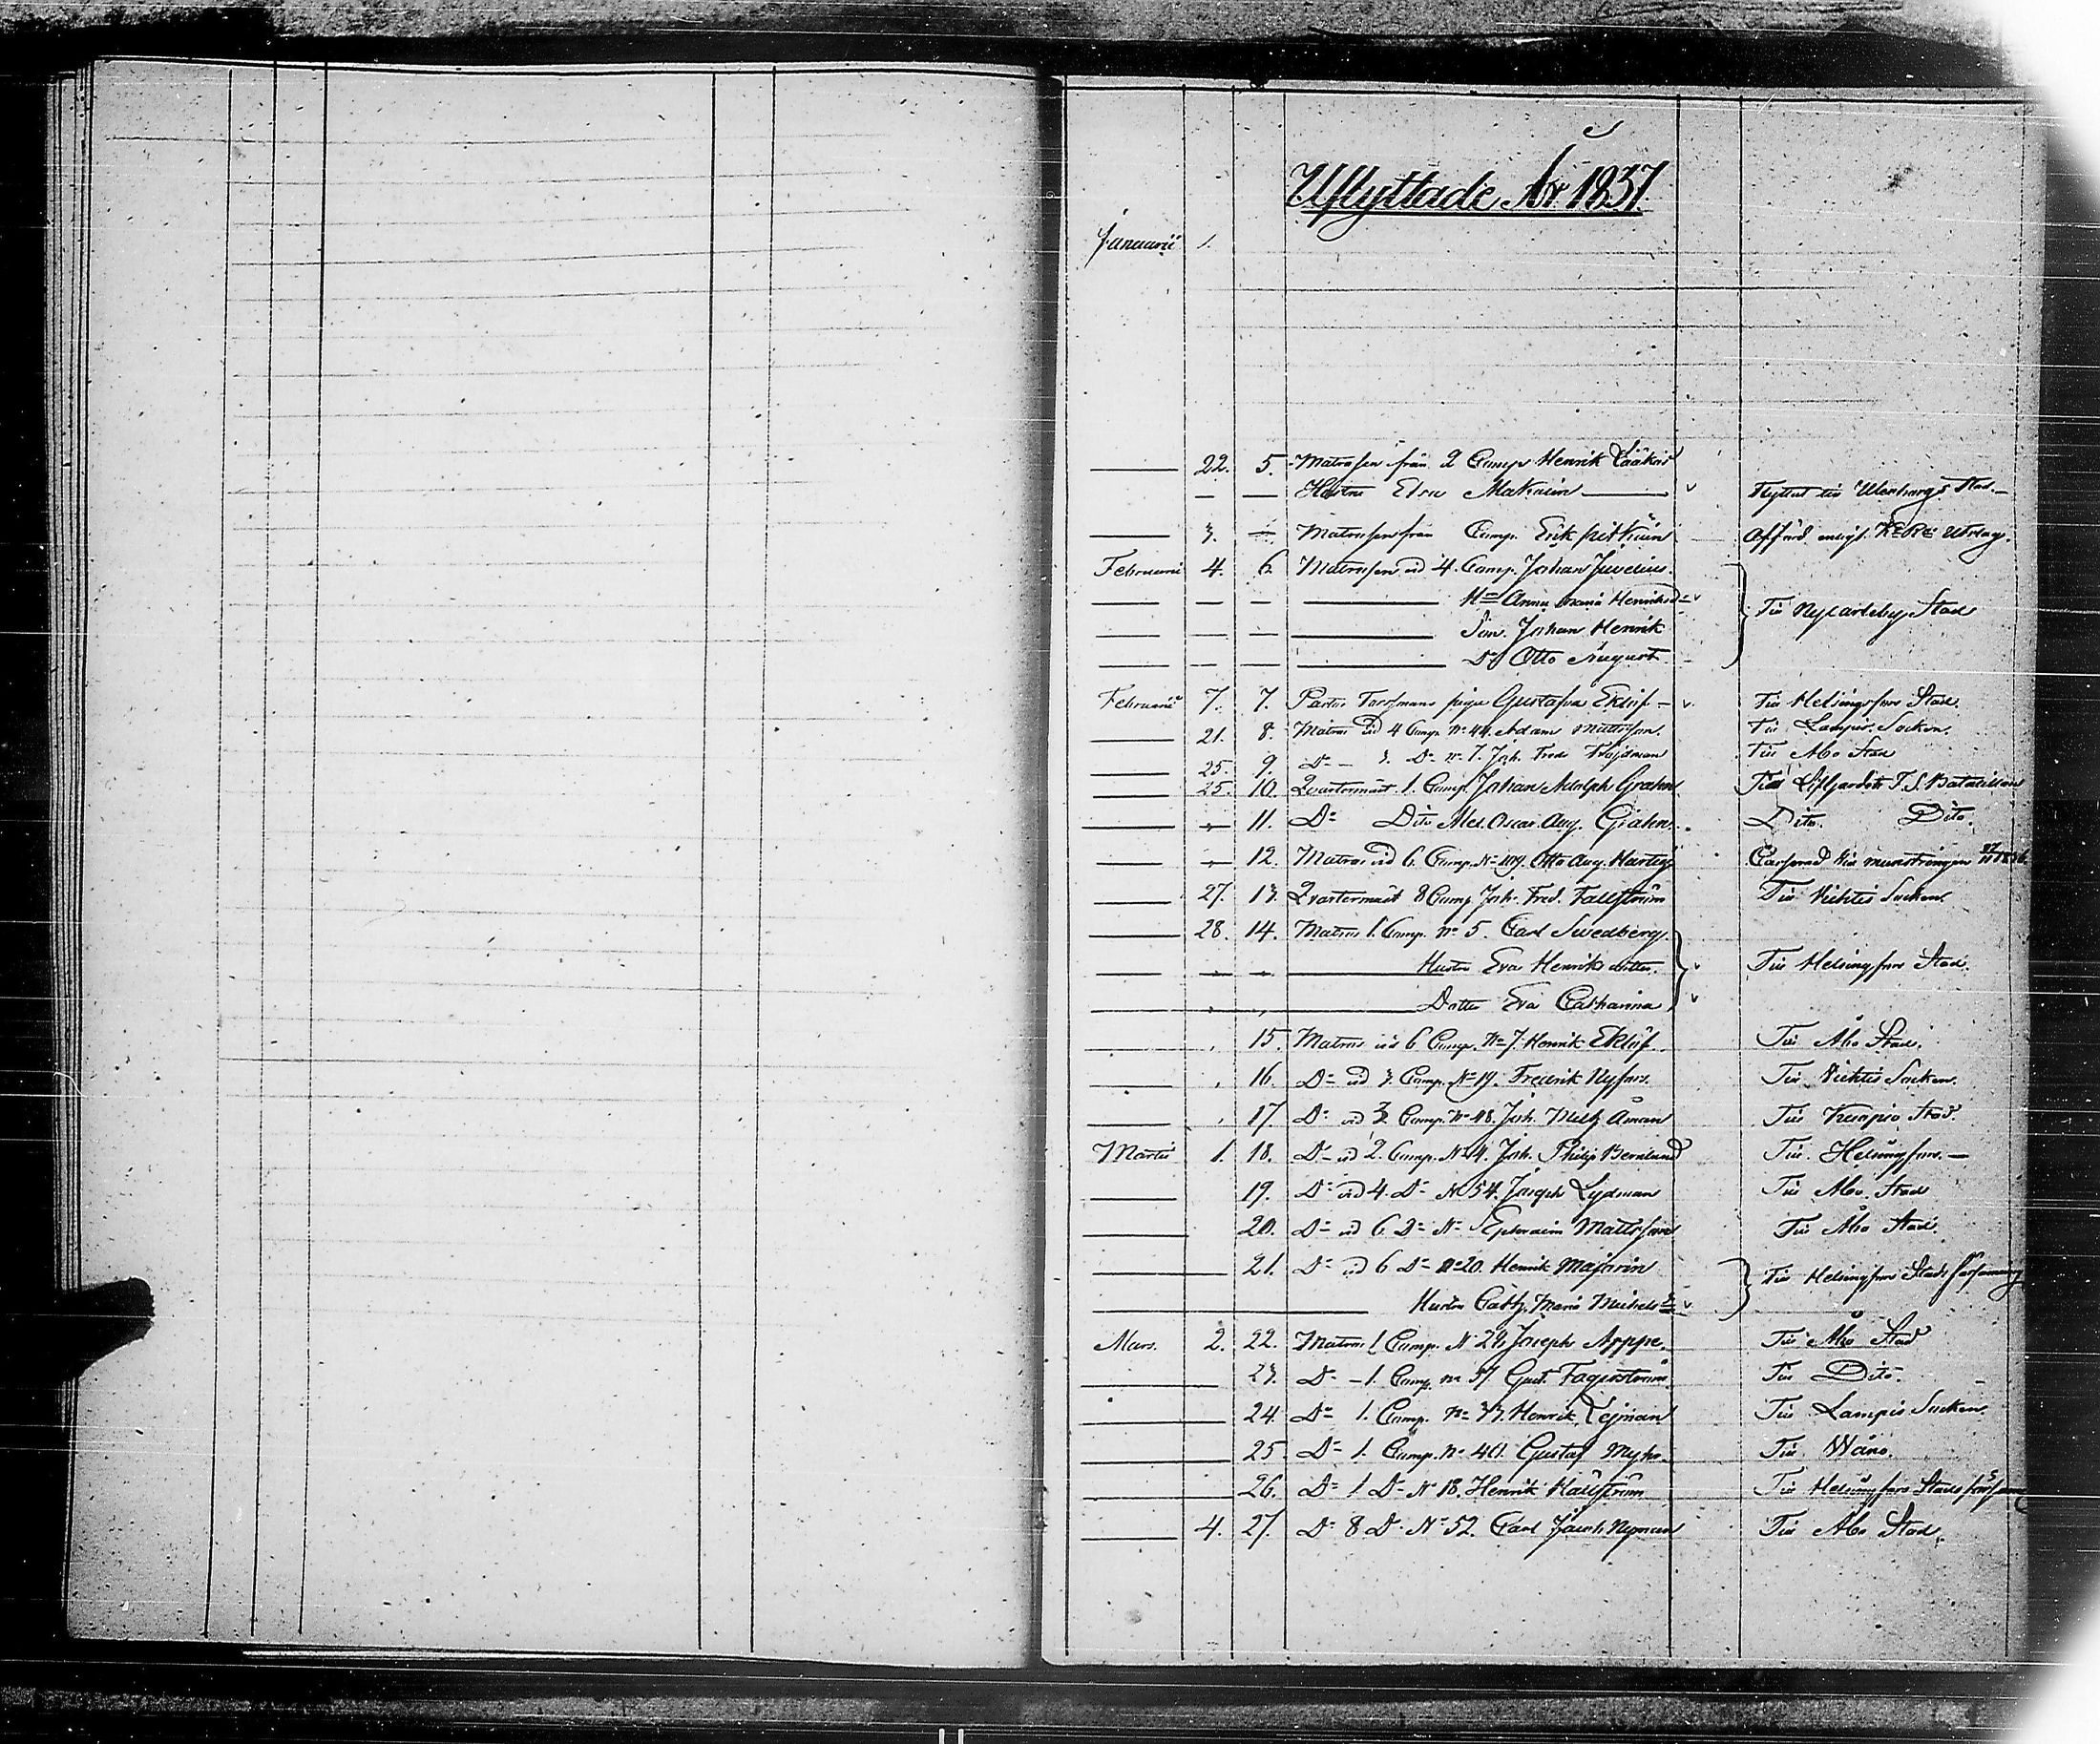 Uflyttade År 1837.
Januarii 1.
22. 5. Matrosen från 2 Comp. Henrik Lääkris
— — Hustru Elsa v Flyttat till Uleåborgs Stad.
3. — Matrosen från Comp. Erik Pitkäin Afförd enligt Utslag.
Februarii 4. 6. Matrosen vid 4. Comp. Johan Juvelius.
— — Anna Maria Henriksd. v Till Nycarleby Stad
— — Son. Johan Henrik
— — Do Otto August
Februarii 7. 7. piga Gustafva Eklöf – v. Till Helsingfors Stad.
21. 8. Matros vid 4 Comp. No 44. Adam Mattsson. Till Lampis Socken.
25. 9. Do – 3. Do No 7. Joh. Fred. Till Åbo Stad
25. 10. Qvartermäst. 1. Comp. Johan Adolph Grahn Till Batallion
11. Do Dito Alex. Oscar. Aug. Grahn. Dito. Dito.
12. Matros vid 6. Comp. No 109. Otto Aug. Hartvig Casserad vid mönstringen
27. 13. Qvartermäst 8 Comp. Joh. Fred. Fallström Till Vichtis Socken.
28. 14. Matros 1. Comp. No 5. Carl Swedberg.
Hustru Eva Henriksdotter. v Till Helsingfors Stad.
Dotter Eva Catharina v
15. Matros vid 6 Comp. No 7. Henrik Eklöf Till Åbo Stad.
16. Do vid 3. Comp. No 19. Fredrik Nyfors. Till Vichtis Socken.
17. Do vid 3. Comp. No 48. Joh. Åman Till Kuopio Stad.
Martii 1. 18. Do vid 2. Comp. No 4. Joh. Philip Bernlund Till Helsingfors. —
19. Do vid 4. Do No 54. Joseph Lydman Till Åbo Stad
20. Do vid 6. Do No Ephraim Mattsson Till Åbo Stad.
21. Do vid 6 Do No 20. Henrik Majarin Till Helsingfors Stads församling
Hustru Cath. Maria Michelsd. v
Mars. 2. 22. Matros 1 Comp. N 29 Joseph Arppe. Till Åbo Stad
23. Do – 1. Comp. No 57 Gust. Fagerström. Till Dito.
24. Do 1. Comp. No 33. Henrik Lejman Till Lampis Socken.
25. Do 1. Comp. No 40. Gustaf Myhr Till Wånå.
26. Do 1 Do No 18. Henrik Hällström Till Helsingfors Stads förs.
4. 27. Do 8 Do No 52. Carl Jacob Nyman Till Åbo Stad.